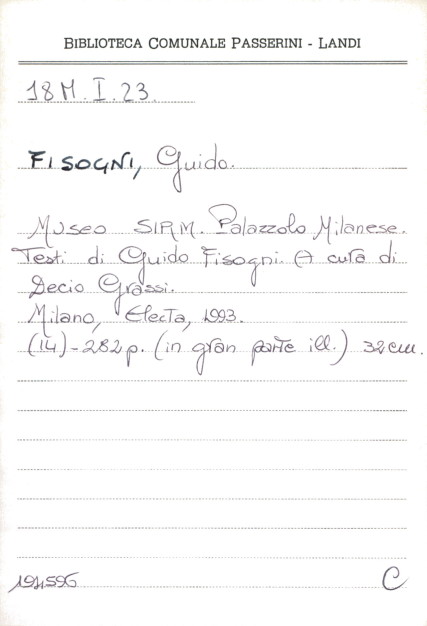 BIBLIOTECA COMUNALE PASSERINI - LANDI
18 M. I. 23.
FISOGNI, Guido.
Museo SIRM. Palazzolo Milanese.
Testi di Guido Fisogni. A cura di
Decio Grassi.
Milano, Electa, 1993.
(14) - 282 p. (in gran parte ill.) 32 cm.
194596
C